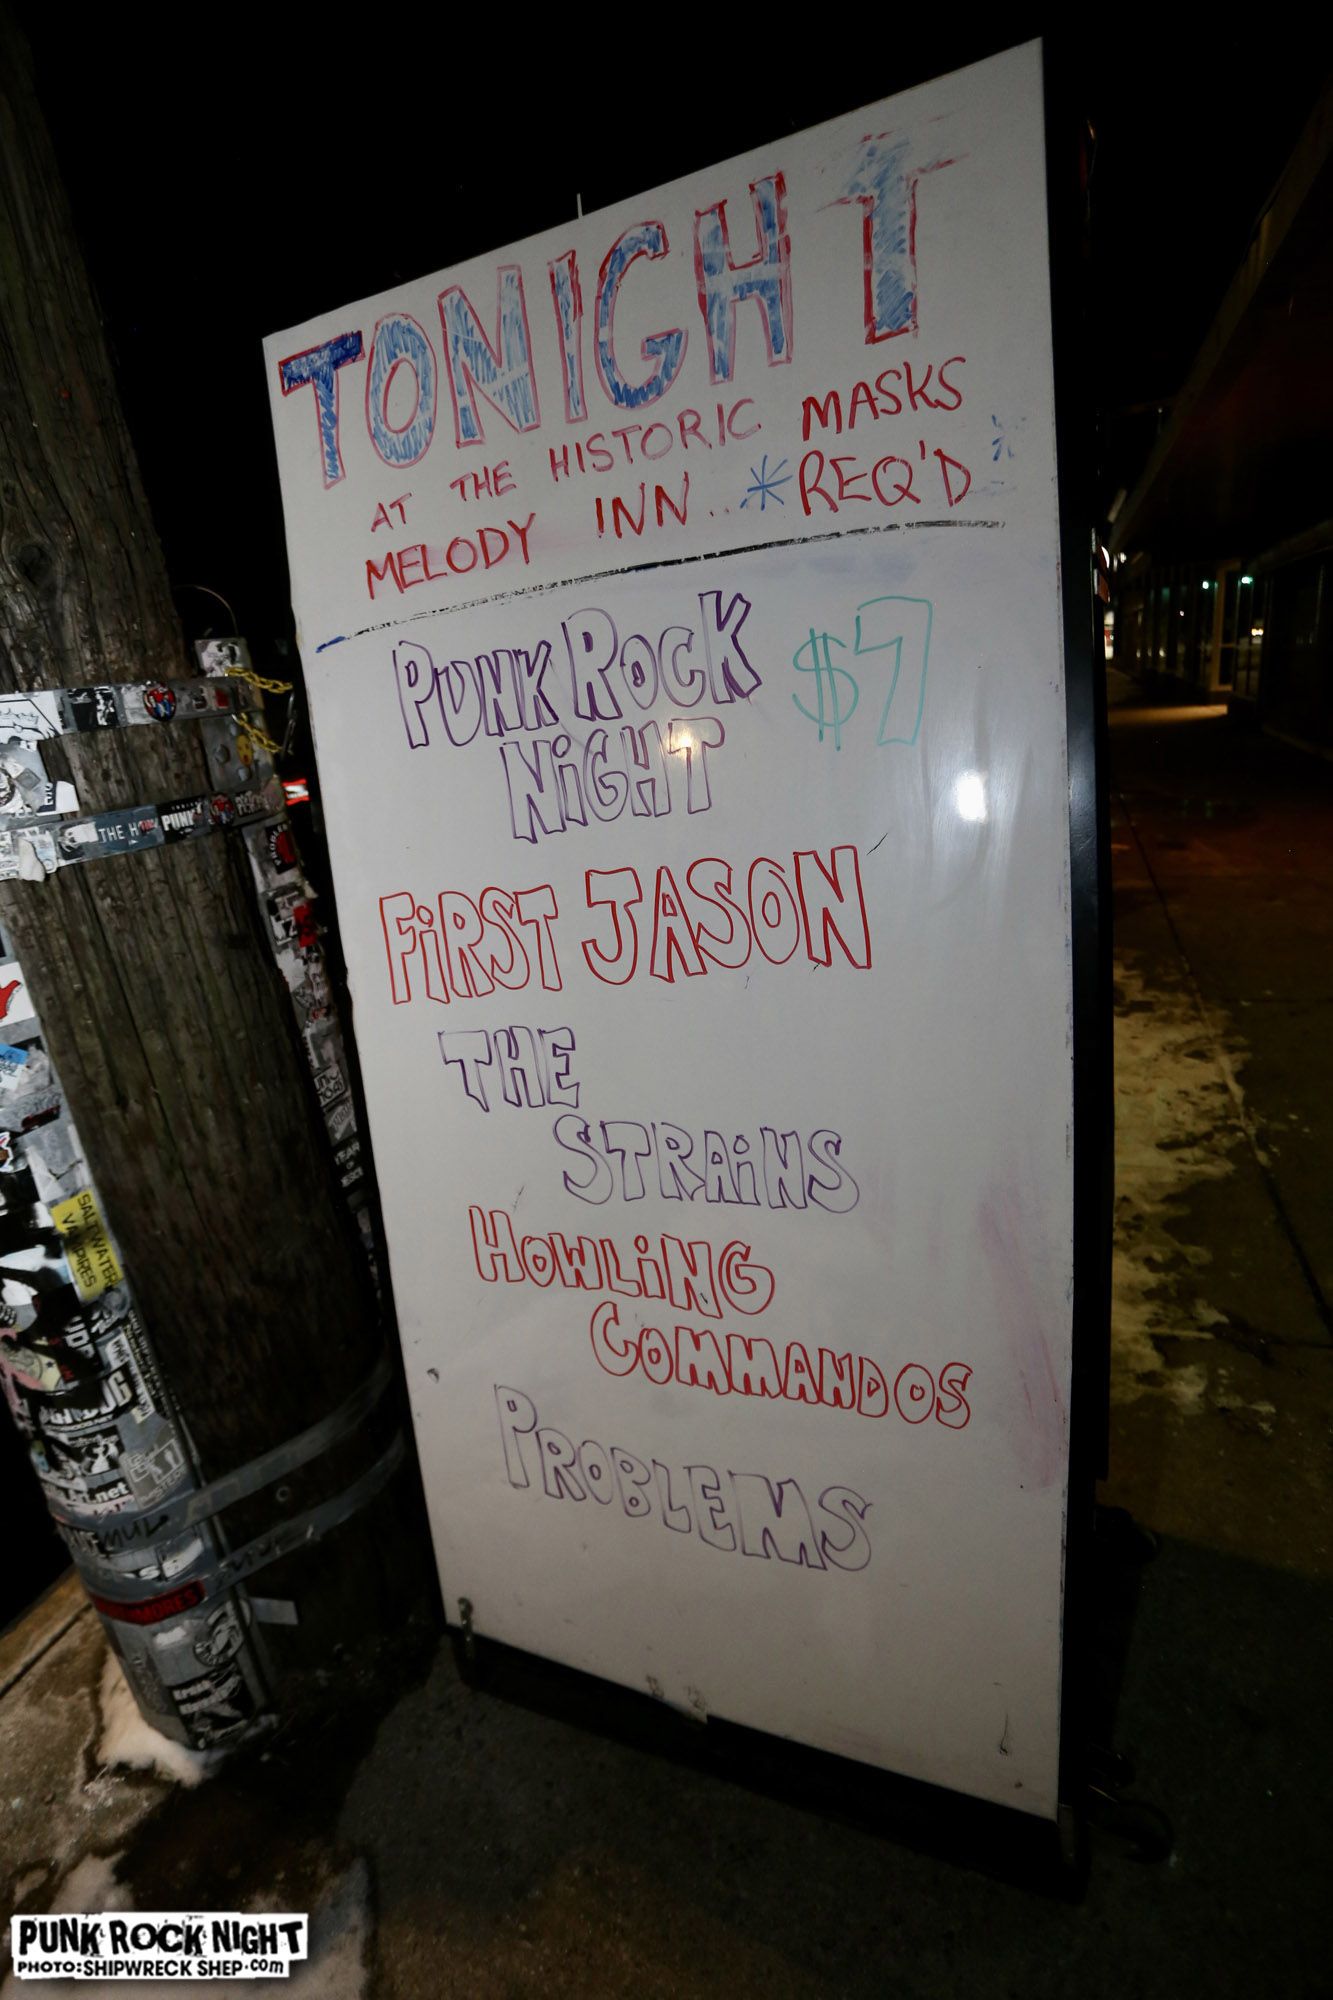 TONIGHT
AT THE HISTORIC
MELODY INN... *
MASKS
REQ'D *
PUNK ROCK
NIGHT
$7
FIRST JASON
THE
STRAINS
HOWLING
COMMANDOS
PROBLEMS
THE
PUNK
SALTWATER
VAMPIRES
YEAR
OF
.net
PUNK ROCK NIGHT
PHOTO:SHIPWRECK SHEP.com